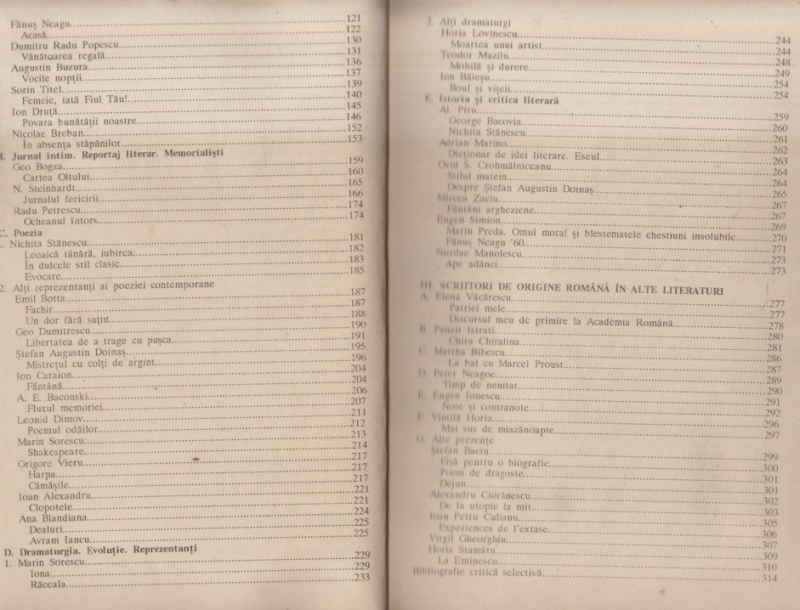 Fănuș Neagu 121
Acasă 122
Dumitru Radu Popescu 130
Vânătoarea regală 131
Augustin Buzura 136
Vocile nopții 137
Sorin Titel 139
Femeie, iată Fiul Tău! 140
Ion Druță 145
Povara bunătății noastre 146
Nicolae Breban 152
În absența stăpânilor 153
B. Jurnal intim. Reportaj literar. Memorialiști
Geo Bogza 159
Cartea Oltului 160
N. Steinhardt 165
Jurnalul fericirii 166
Radu Petrescu 174
Ocheanul întors 174
C. Poezia
1. Nichita Stănescu 181
Leoaică tânără, iubirea 182
În dulcele stil clasic 183
Evocare 185
2. Alți reprezentanți ai poeziei contemporane
Emil Botta 187
Fachir 187
Un dor fără sațiu 188
Geo Dumitrescu 190
Libertatea de a trage cu pușca 191
Ștefan Augustin Doinaș 195
Mistrețul cu colți de argint 196
Ion Caraion 204
Fântână 204
A. E. Baconski 206
Fluxul memoriei 207
Leonid Dimov 211
Poemul odăilor 212
Marin Sorescu 213
Shakespeare 214
Grigore Vieru 217
Harpa 217
Cămășile 217
Ioan Alexandru 221
Clopotele 221
Ana Blandiana 224
Dealuri 225
Avram Iancu 225
D. Dramaturgia. Evoluție. Reprezentanți
1. Marin Sorescu 229
Iona 229
Răceala 233
2. Alți dramaturgi
Horia Lovinescu 244
Moartea unui artist 244
Teodor Mazilu 248
Mobilă și durere 249
Ion Băieșu 254
Boul și vițeii 254
E. Istoria și critica literară
Al. Piru 259
George Bacovia 260
Nichita Stănescu 261
Adrian Marino 262
Dicționar de idei literare. Eseul 263
Ovid S. Crohmălniceanu 264
Stilul matein 264
Despre Ștefan Augustin Doinaș 265
Mircea Zaciu 267
Fântâni argheziene 267
Eugen Simion 269
Marin Preda. Omul moral și blestematele chestiuni insolubile 270
Fănuș Neagu '60 271
Nicolae Manolescu 273
Ape adânci 273
III. SCRIITORI DE ORIGINE ROMÂNĂ ÎN ALTE LITERATURI
A. Elena Văcărescu 277
Patriei mele 277
Discursul meu de primire la Academia Română 278
B. Panait Istrati 280
Chira Chiralina 281
C. Martha Bibescu 286
La bal cu Marcel Proust 287
D. Peter Neagoe 289
Timp de neuitat 290
E. Eugen Ionescu 291
Note și contranote 292
F. Vintilă Horia 296
Mai sus de miazănoapte 297
G. Alte prezențe
Ștefan Baciu 299
Fișă pentru o biografie 300
Poem de dragoste 301
Dejun 301
Alexandru Ciorănescu 302
De la utopie la mit 303
Ioan Petru Culianu 305
Experiences de l'extase 306
Virgil Gheorghiu 307
Horia Stamatu 309
La Eminescu 310
Bibliografie critică selectivă 314